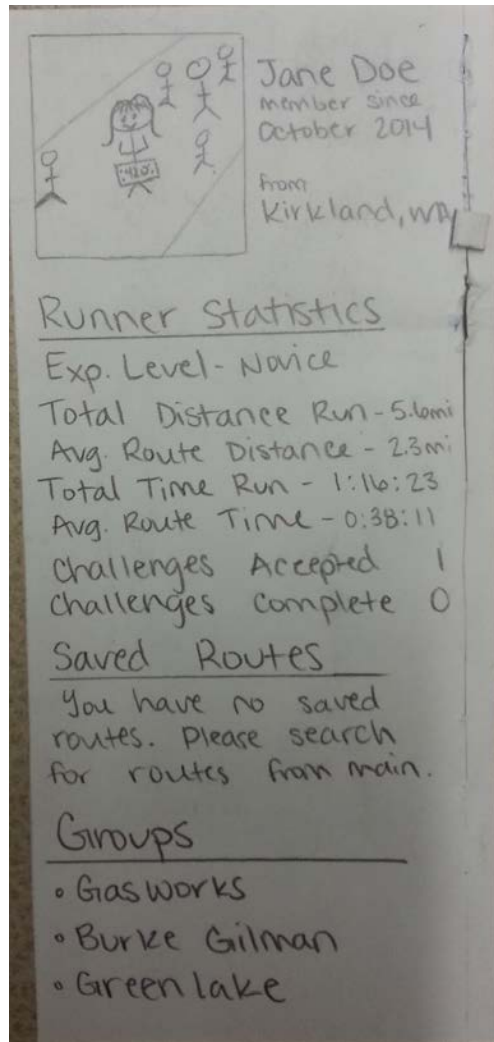 Jane Doe
member since
October 2014
from
Kirkland, WA
Runner Statistics
Exp. Level - Novice
Total Distance Run - 5.6mi
Avg. Route Distance - 2.3mi
Total Time Run - 1:16:23
Avg. Route Time - 0:38:11
Challenges Accepted 1
Challenges Complete 0
Saved Routes
You have no saved
routes. Please search
for routes from main.
Groups
• Gasworks
• Burke Gilman
• Green lake